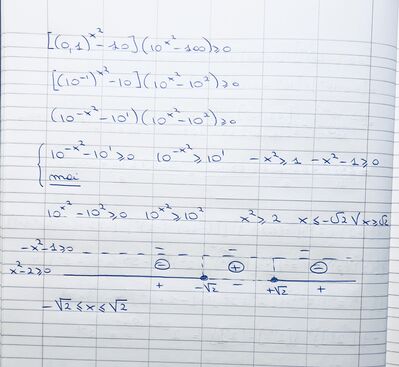 [(0,1)^x² - 10](10^x² - 100) ⩾ 0
[(10⁻¹)^x² - 10](10^x² - 10²) ⩾ 0
(10^-x² - 10¹)(10^x² - 10²) ⩾ 0
{ 10^-x² - 10¹ ⩾ 0 10^-x² ⩾ 10¹ -x² ⩾ 1 -x² - 1 ⩾ 0
mai
10^x² - 10² ⩾ 0 10^x² ⩾ 10² x² ⩾ 2 x ⩽ -√2 ∨ x ⩾ √2
-x² - 1 ⩾ 0 - - -
x² - 2 ⩾ 0 ⊖ ⊕ ⊖
+ -√2 - +√2 +
-√2 ⩽ x ⩽ √2